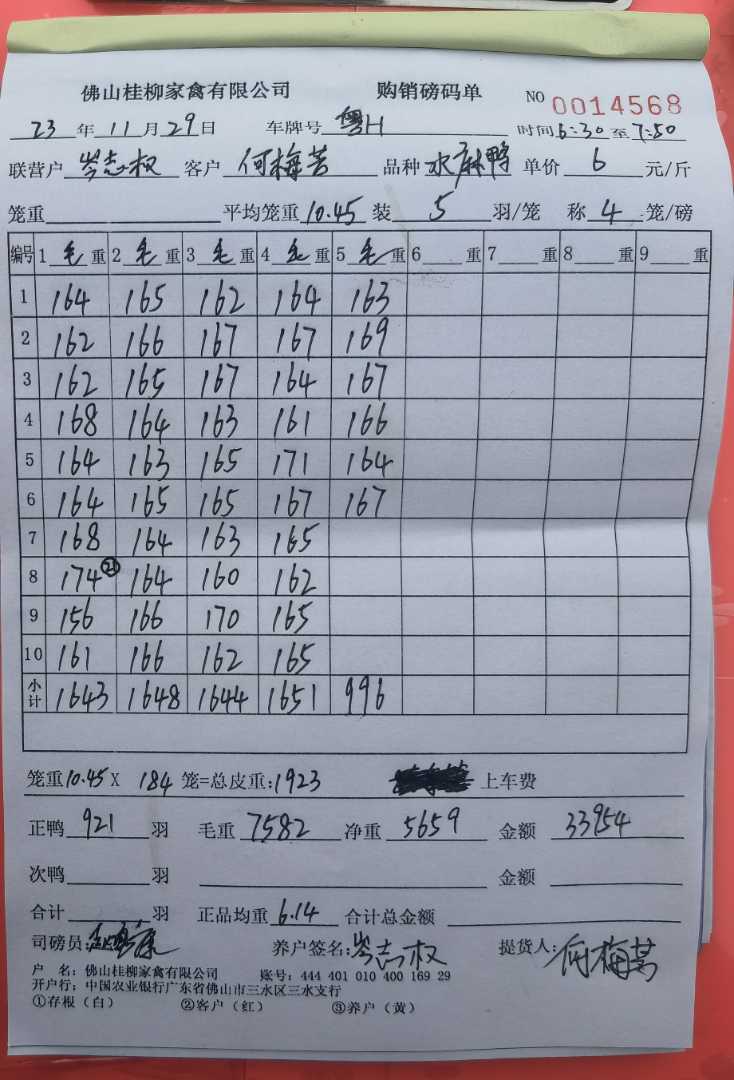 佛山桂柳家禽有限公司 购销磅码单 NO 0014568
23年11月29日 车牌号 粤H 时间6:30至7:50
联营户 岑志权 客户 何梅芳 品种 水麻鸭 单价 6 元/斤
笼重 平均笼重10.45 装 5 羽/笼 称 4 笼/磅
编号 1 毛 重 2 毛 重 3 毛 重 4 毛 重 5 毛 重 6 重 7 重 8 重 9 重
1 164 165 162 164 163
2 162 166 167 167 169
3 162 165 167 164 167
4 168 164 163 161 166
5 164 163 165 171 164
6 164 165 165 167 167
7 168 164 163 165
8 174 21 164 160 162
9 156 166 170 165
10 161 166 162 165
小计 1643 1648 1644 1651 996
笼重10.45X 184 笼=总皮重:1923 上车费
正鸭 921 羽 毛重 7582 净重 5659 金额 33954
次鸭 羽 金额
合计 羽 正品均重 6.14 合计总金额
司磅员: 养户签名:岑志权 提货人:何梅芳
户 名:佛山桂柳家禽有限公司 账号:444 401 010 400 169 29
开户行:中国农业银行广东省佛山市三水区三水支行
①存根(白) ②客户(红) ③养户(黄)